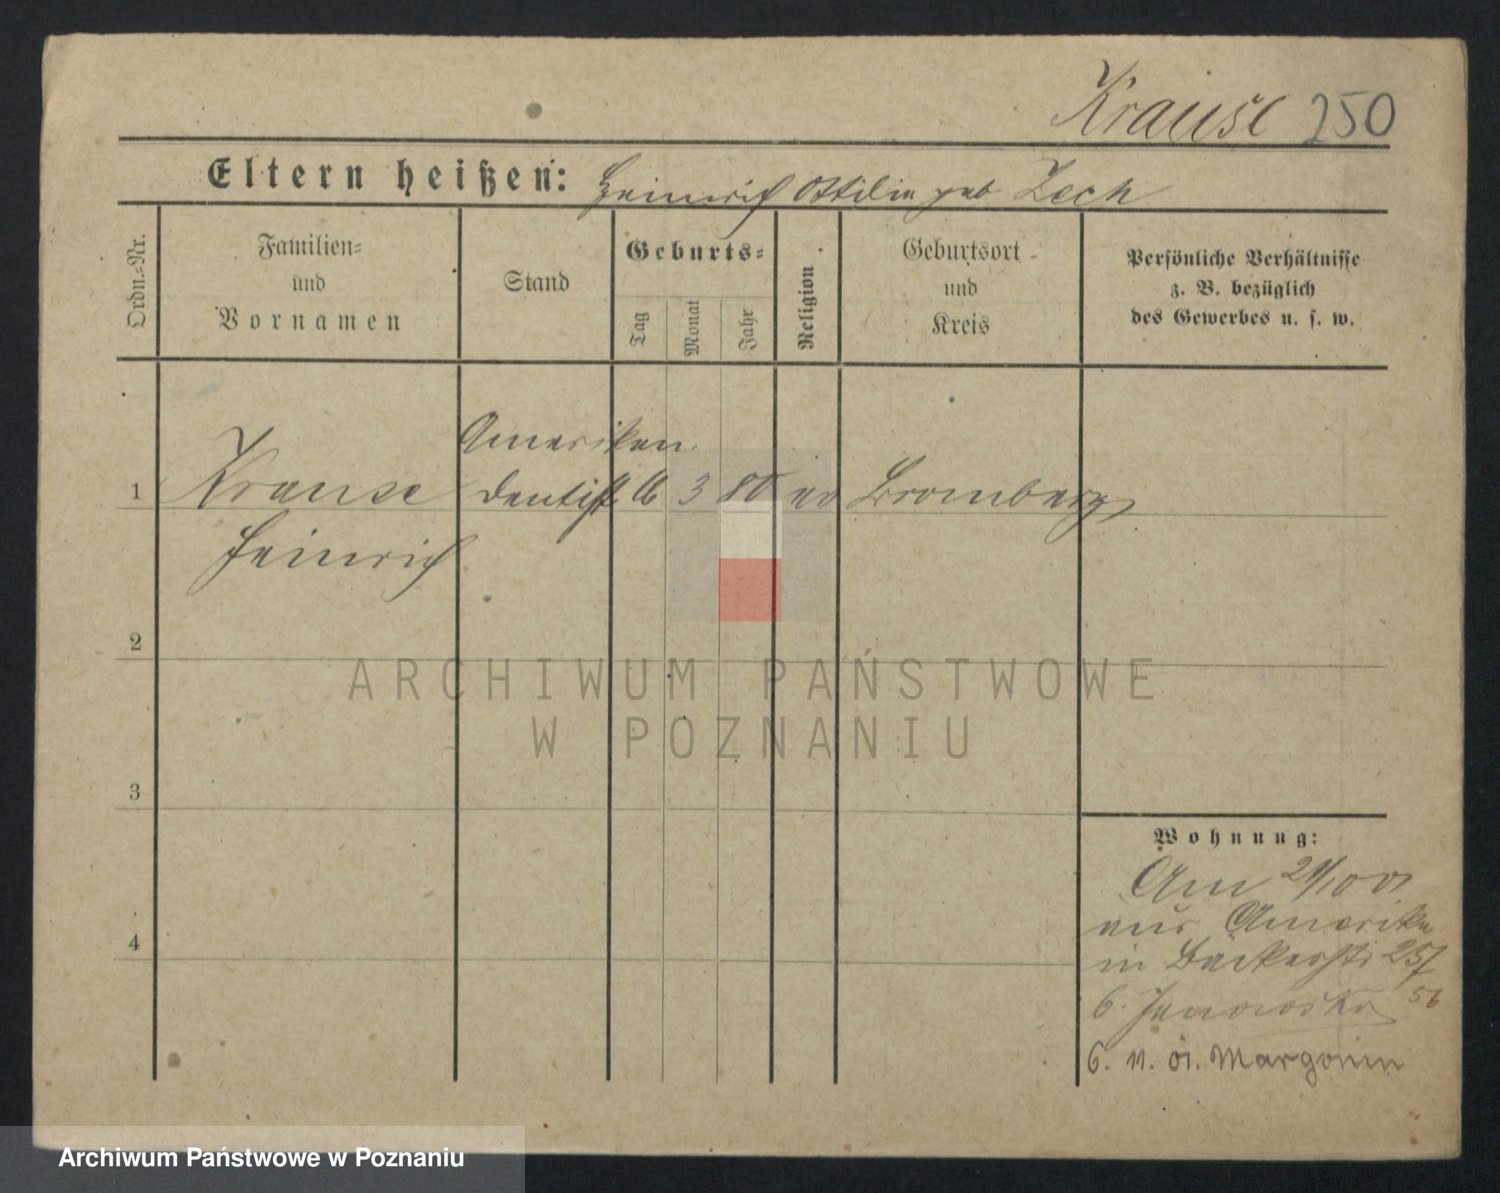 Krause 250
Eltern heißen: Heinrich Ottilie geb Zech
Ordn.-Nr.
Familien-
und
Vornamen
Stand
Geburts-
Tag
Monat
Jahr
Religion
Geburtsort
und
Kreis
Persönliche Verhältnisse
z. B. bezüglich
des Gewerbes u. s. w.
Amerikan.
1 Krause Dentist 16 3 80 ev Bromberg
Heinrich
2
ARCHIWUM PAŃSTWOWE
W POZNANIU
3
4
Wohnung:
Am 21/10 01
aus Amerika
in Bäckerstr 25/
b.
6. 11. 01. Margonin
Archiwum Państwowe w Poznaniu